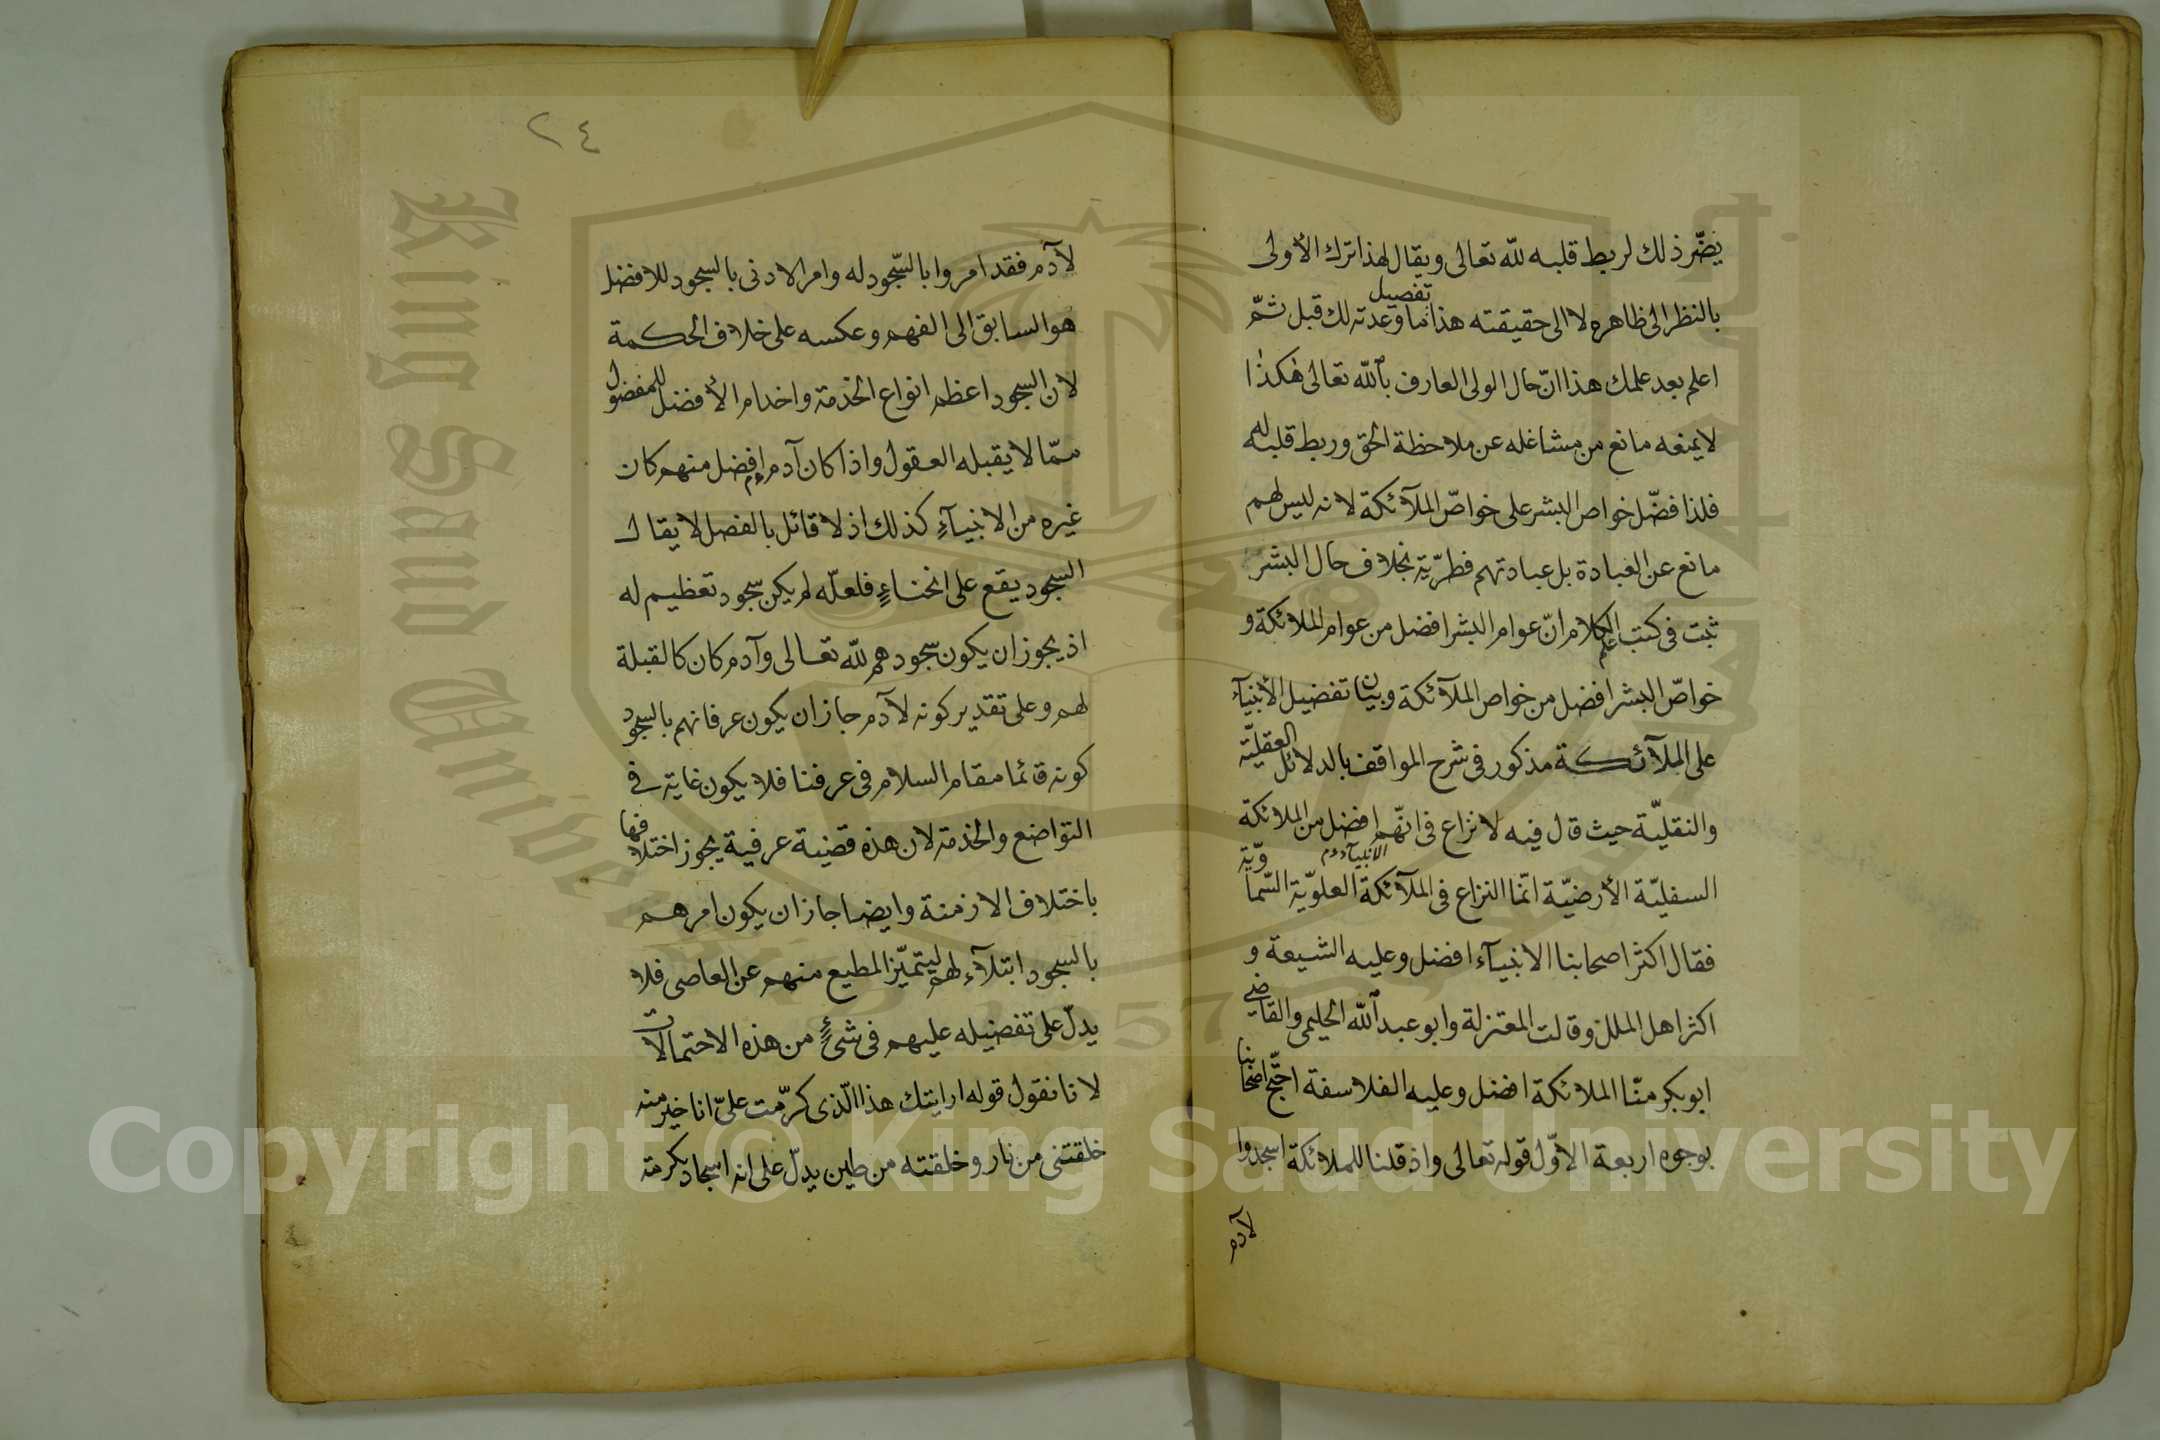 يضّر ذلك لربط قلبه للّه تعالى ويقال لهذا ترك الأولى
تفصيل
بالنظر الى ظاهره لا الى حقيقته هذا ما وعدته لك قبل ثمّ
اعلم بعد علمك هذا انّ حال الولى العارف باللّه تعالى هكذا
لا يمنعه مانع من مشاغله عن ملاحظة الحق وربط قلبه له
فلذا فضّل خواص البشر على خواصّ الملآئكة لانه ليس لهم
مانع عن العبادة بل عبادتهم فطرّية بخلاف حال البشر
ثبت فى كتب الكلام انّ عوام البشر افضل من عوام الملائكة و
علم
خواصّ البشر افضل من خواص الملآئكة وبيان تفضيل الأنبيآء
على الملآئكة مذكور فى شرح المواقف بالدلائل العقليّة
والنقليّة حيث قال فيه لا نزاع فى انّهم افضل من الملائكة
الانبيآء
السفليّة الأرضيّة انّما النزاع فى الملآئكة العلويّة السّماويّة
فقال اكثر اصحابنا الانبيآء افضل وعليه الشيعة و
اكثر اهل الملل وقالت المعتزلة وابو عبد اللّه الحليمى والقاضى
ابو بكر منّا الملائكة افضل وعليه الفلاسفة احتّج اصحابنا
بوجوه اربعة الاوّل قوله تعالى واذ قلنا للملائكة اسجدوا
لآدم
٢٤
لآدم فقد امروا بالسّجود له وامر الادنى بالسجود للافضل
هو السابق الى الفهم وعكسه على خلاف الحكمة
لان السجود اعظم انواع الخدمة واخدام الأفضل للمفضول
ممّا لا يقبله العقول واذا كان آدم افضل منهم كان
غيره من الانبيآء كذلك اذ لا قائل بالفصل لا يقال
السجود يقع على انحناءٍ فلعلّه لم يكن سجود تعظيم له
اذ يجوز ان يكون سجودهم للّه تعالى وآدم كان كالقبلة
لهم وعلى تقدير كونه لآدم جاز ان يكون عرفانهم بالسجود
كونه قائما مقام السلام فى عرفنا فلا يكون غاية فى
التواضع والخدمة لان هذه قضية عرفية يجوز اختلافها
باختلاف الازمنة وايضا جاز ان يكون امرهم
بالسجود ابتلآء لهم ليتميّز المطيع منهم عن العاصى فلا
يدلّ على تفضيله عليهم فى شئٍ من هذه الاحتمالات
لانا نقول قوله ارايتك هذا الّذى كرّمت علىّ انا خير منه
خلقتنى من نار وخلقته من طين يدلّ على انه اسجاد تكرمة
King Saud University
1957
Copyright © King Saud University